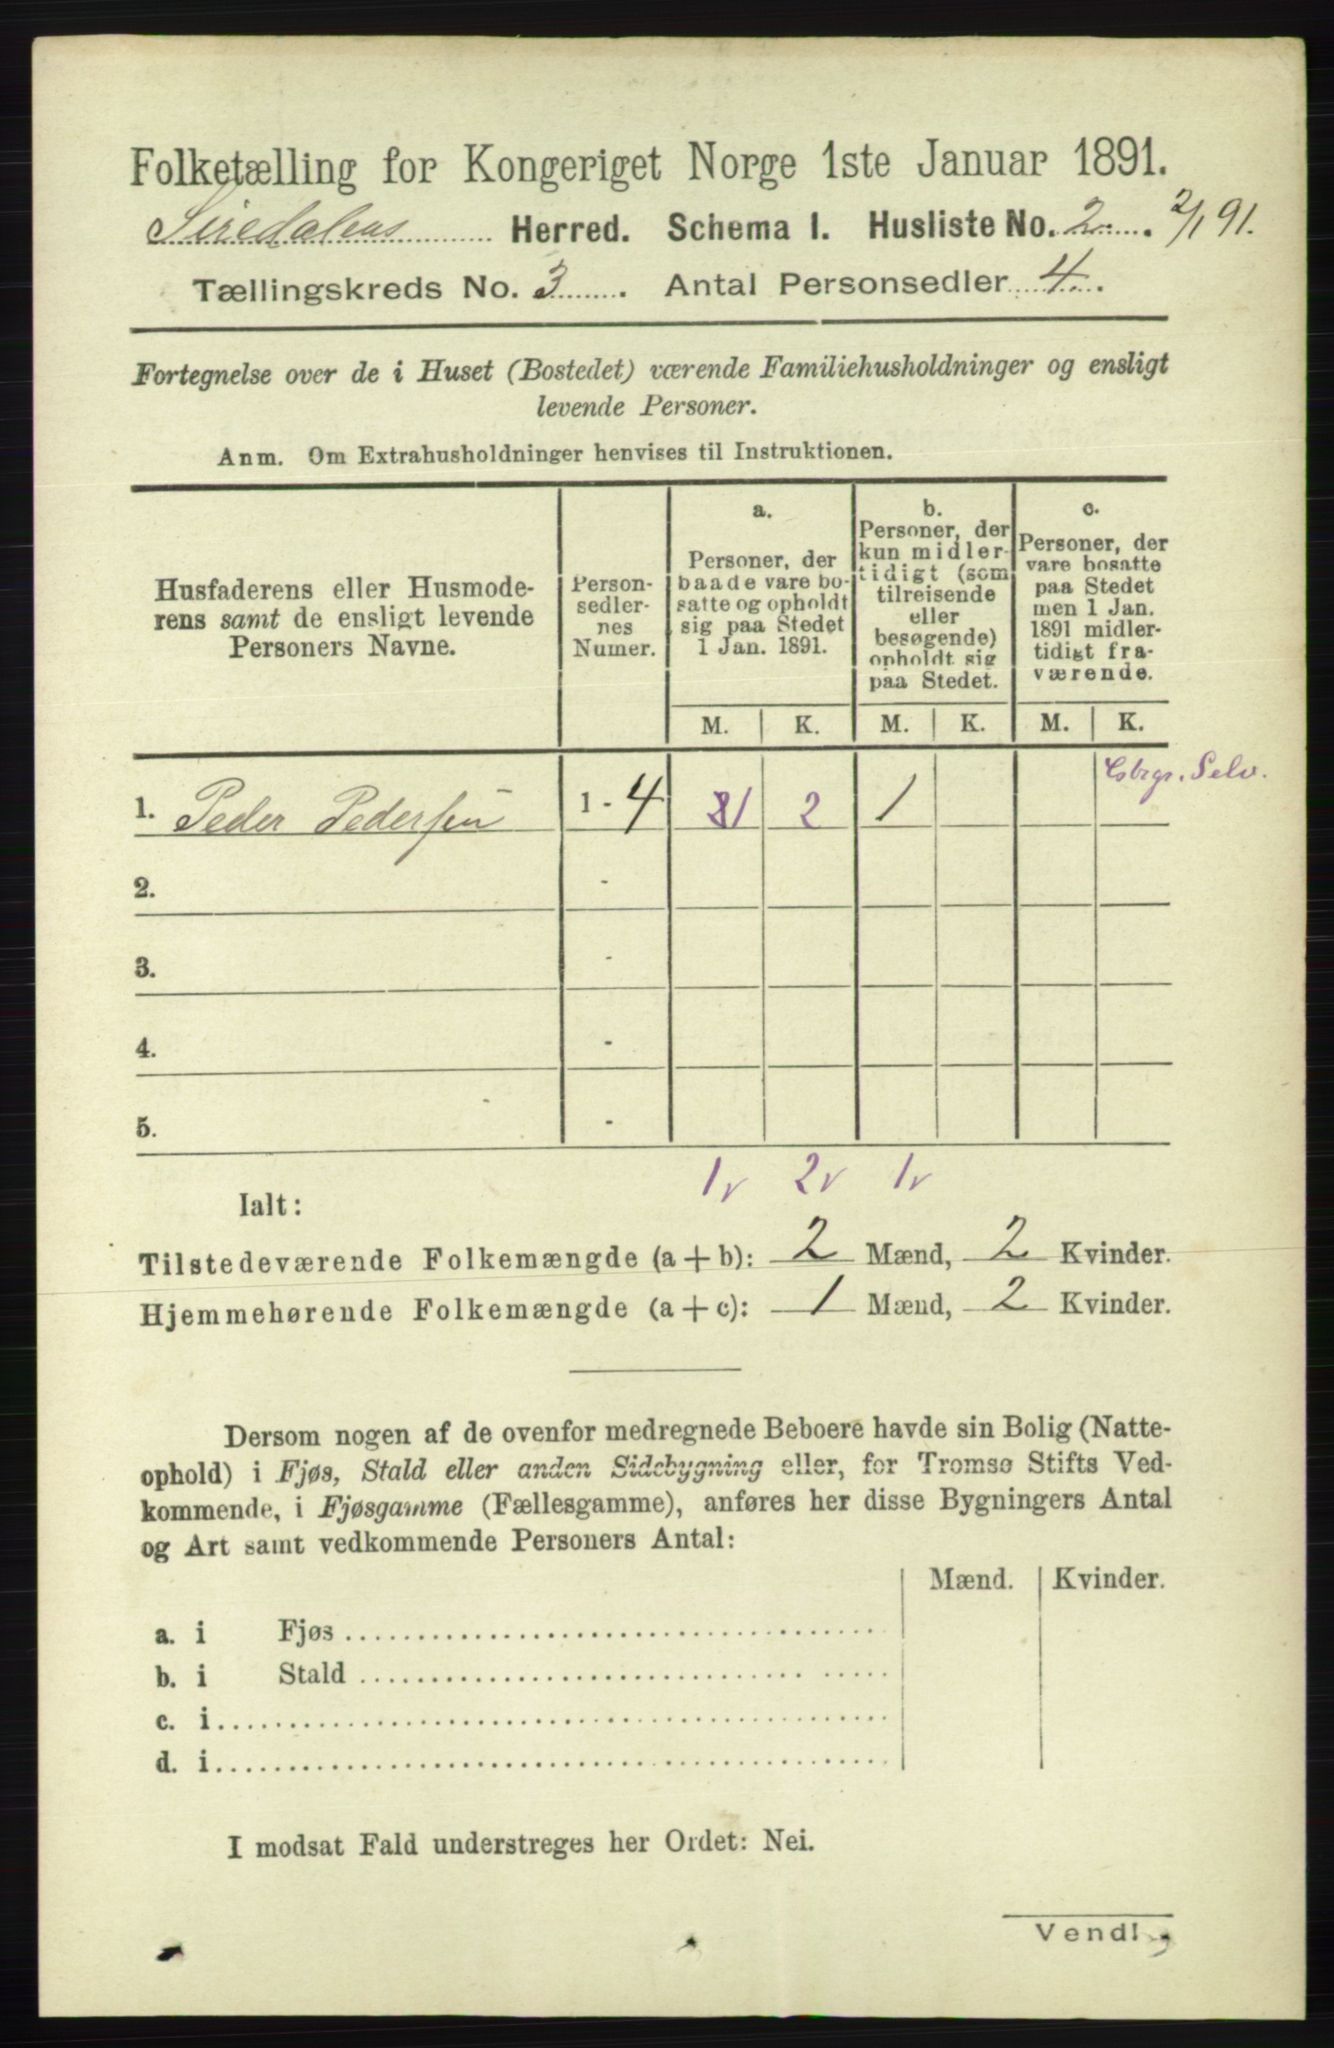 Folketælling for Kongeriget Norge 1ste Januar 1891.
Siredalens Herred. Schema 1. Husliste No. 2. 2/1 91.
Tællingskreds No. 3. Antal Personsedler 4.
Fortegnelse over de i Huset (Bostedet) værende Familiehusholdninger og ensligt
levende Personer.
Anm. Om Extrahusholdninger henvises til Instruktionen.
Husfaderens eller Husmode-
rens samt de ensligt levende
Personers Navne.
Person-
sedler-
nes
Numer.
a.
Personer, der
baade vare bo-
satte og opholdt
sig paa Stedet
1 Jan. 1891.
b.
Personer, der
kun midler-
tidigt (som
tilreisende
eller
besøgende)
opholdt sig
paa Stedet.
c.
Personer, der
vare bosatte
paa Stedet
men 1 Jan.
1891 midler-
tidigt fra-
værende.
M. K. M. K. M. K.
Selv.
1. Peder Pedersen 1 - 4 1 2 1
2. -
3. -
4. -
5. -
1 2 1
Ialt:
Tilstedeværende Folkemængde (a + b): 2 Mænd, 2 Kvinder.
Hjemmehørende Folkemængde (a + c): 1 Mænd, 2 Kvinder.
Dersom nogen af de ovenfor medregnede Beboere havde sin Bolig (Natte-
ophold) i Fjøs, Stald eller anden Sidebygning eller, for Tromsø Stifts Ved-
kommende, i Fjøsgamme (Fællesgamme), anføres her disse Bygningers Antal
og Art samt vedkommende Personers Antal:
Mænd. Kvinder.
a. i Fjøs
b. i Stald
c. i
d. i
I modsat Fald understreges her Ordet: Nei.
Vend!